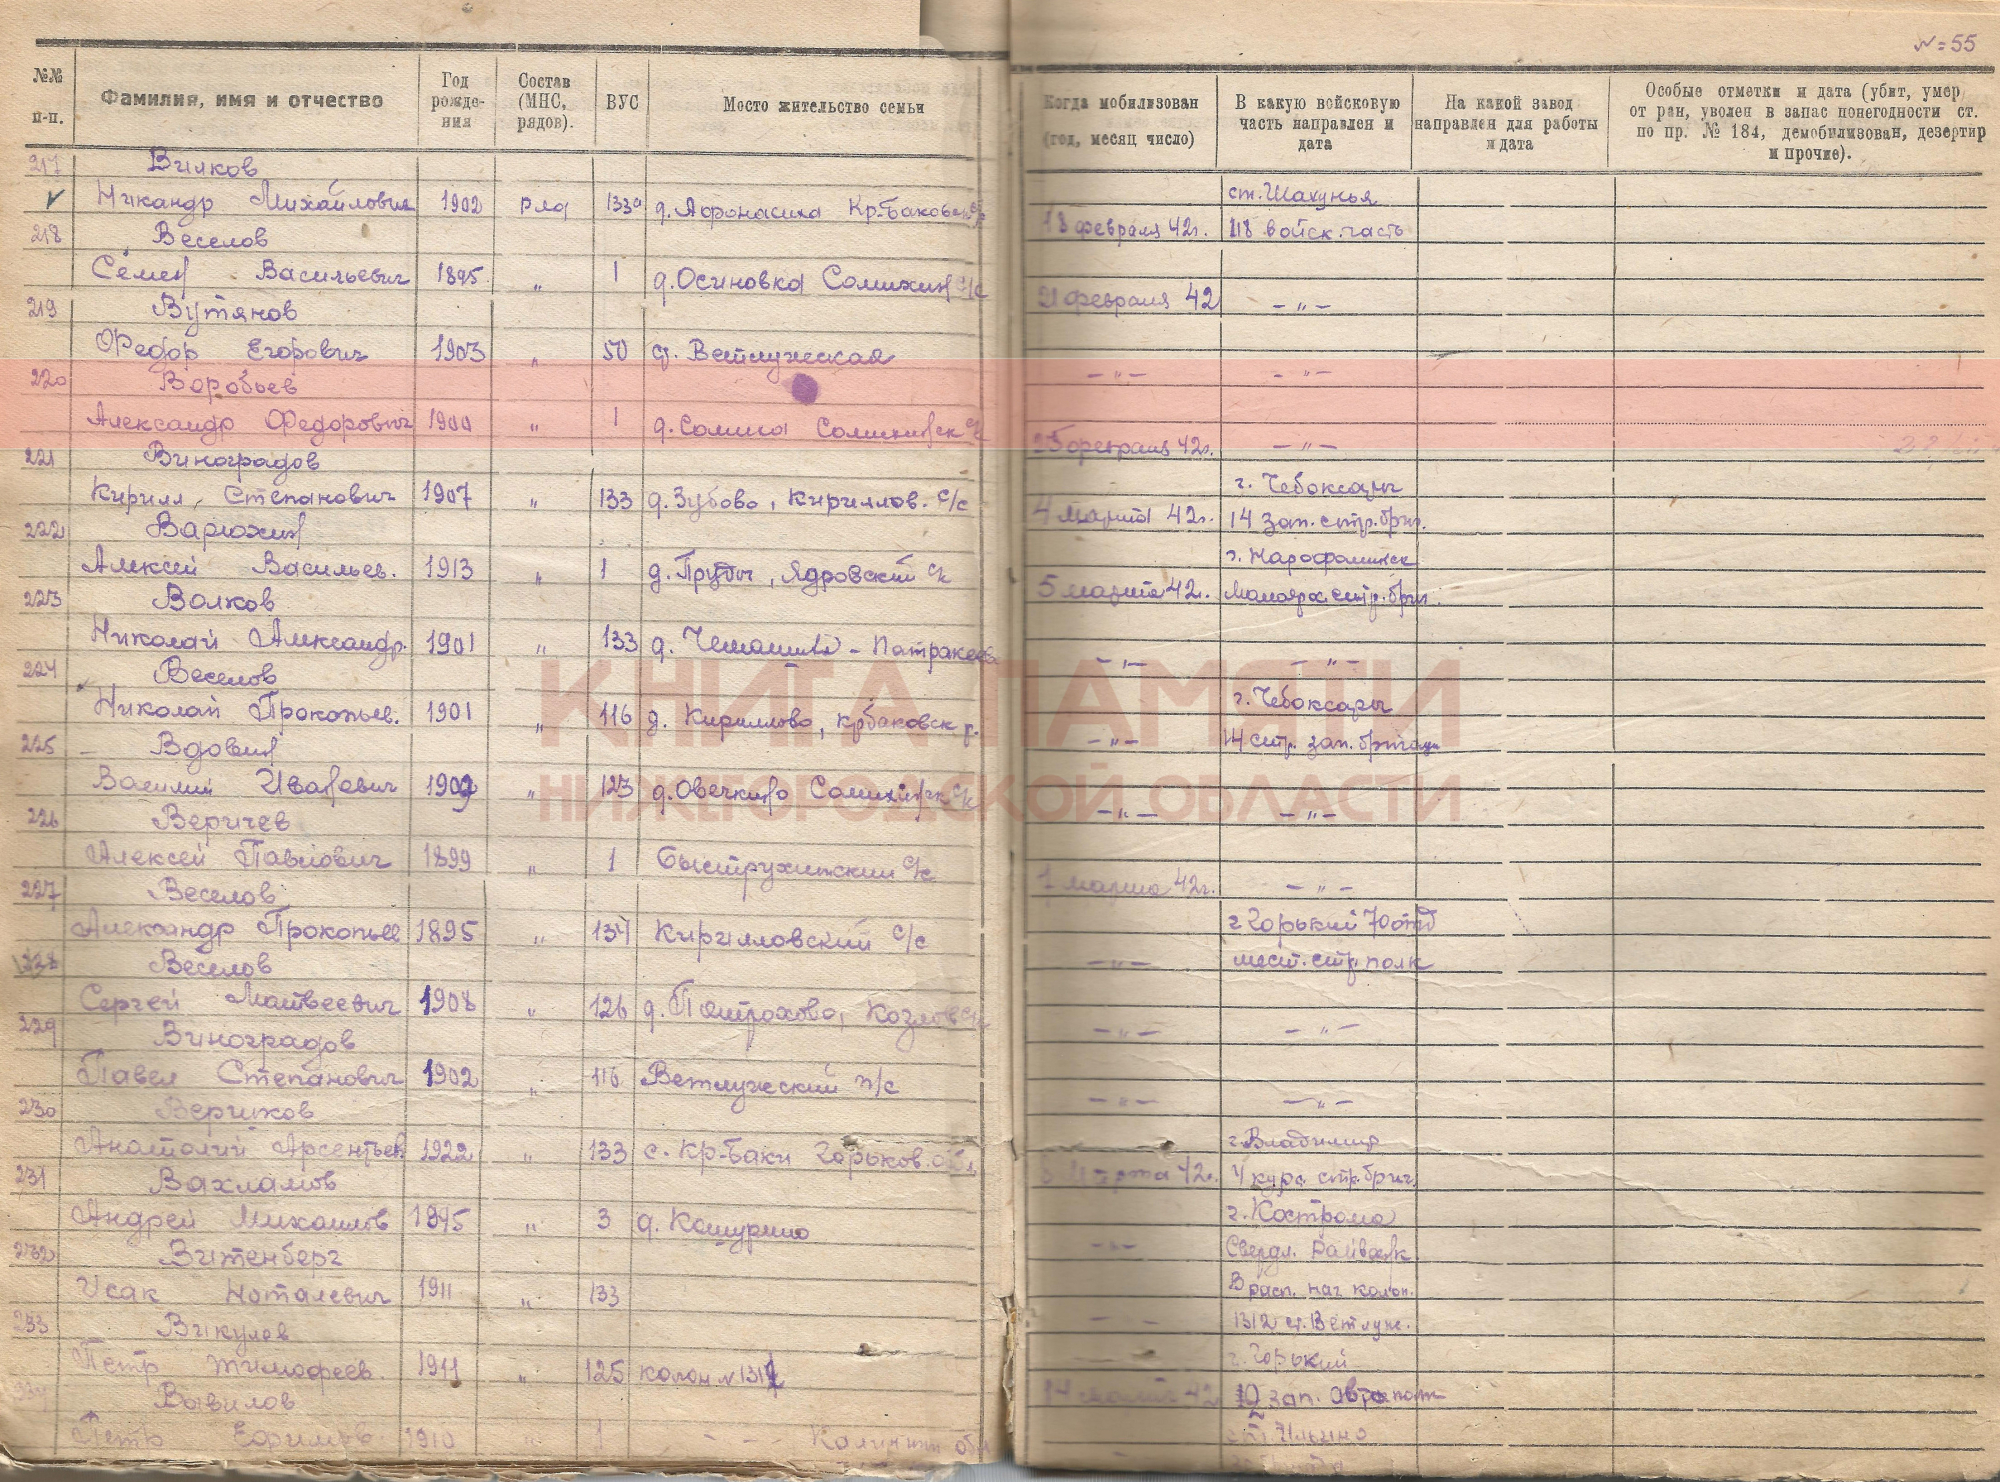 №=55
№№ п-п.
Фамилия, имя и отчество
Год рожде-ния
Состав (МНС, рядов).
ВУС
Мосто жительство семьи
Когда мобилизован (год, месяц число)
В какую войсковую часть направлен и дата
На какой завод направлен для работы и дата
Особые отметки и дата (убит, умер от ран, уволен в запас понегодности ст. по пр. № 184, демобилизован, дезертир и прочие).
217 Вилков
Никандр Михайлович 1902 ряд 133 ст. Шахунья
18 февраля 42г. 118 войск. часть
218 Веселов
Семен Васильевич 1895 „ 1 д. Осиновка с/с
21 февраля 42 –„–
219 Вутянов
Федор Егорович 1903 „ 50 ст. Ветлужская
–„– –„–
220 Воробьев
Александр Федорович 1900 „ 1 д.
25 февраля 42г. –„–
221 Виноградов
Кирилл Степанович 1907 „ 133 д. Зубово, Кириллов. с/с г. Чебоксары
4 марта 42г. 14 зап. стр. бриг.
222 Варюхин
Алексей Васильев. 1913 „ 1 д. Пруды, Ядровский с/с г. Нарофоминск
5 марта 42г. стр. бриг.
223 Волков
Николай Александр. 1901 „ 133 д.
–„– –„–
224 Веселов
Николай Прокопьев. 1901 „ 116 д. Кириллово, Крбаковск р. г. Чебоксары
–„– 14 стр. зап. бригада
225 Вдовин
Василий Иванович 1909 „ 123 д. Овечкино с/с
–„– –„–
226 Веричев
Алексей Павлович 1899 „ 1 Быструхинский с/с
7 марта 42г. –„–
227 Веселов
Александр Прокопьев 1895 „ 134 Кирилловский с/с г. Горький 70 отд
–„– мест. стр. полк
228 Веселов
Сергей Матвеевич 1908 „ 126 д.
–„– –„–
229 Виноградов
Павел Степанович 1902 „ 116 Ветлужский п/с
–„– –„–
230 Верихов
Анатолий Арсентьев. 1922 „ 133 с. Кр-Баки Горьков. обл. г. Владимир
марта 42г. 4 курс. стр. бриг.
231 Вахламов
Андрей Михайлов „ 3 д. г. Кострома
–„– Свердл.
232 Витенберг
ИсакНоталевич 1911 „ 133 В расп. нач колон.
1312 ст. Ветлуж.
233 Викулов
Петр Тимофеев. 1911 „ 125 колон № г. Горький
14 марта 42 10 зап. автополк
Вавилов
Петр Ефимов. 1910 „ 1 обл ст Ильино
КНИГА ПАМЯТИ
НИЖЕГОРОДСКОЙ ОБЛАСТИ